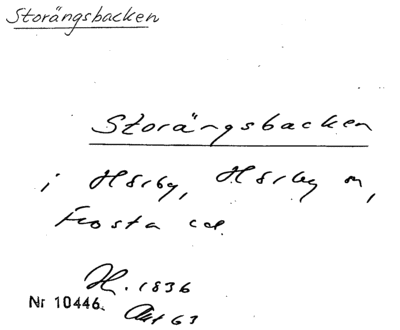 Storängsbacken
Storängsbacken
i Hörby, Hörby sn,
Frosta hd.
H. 1836
Nr 10446. Akt 63